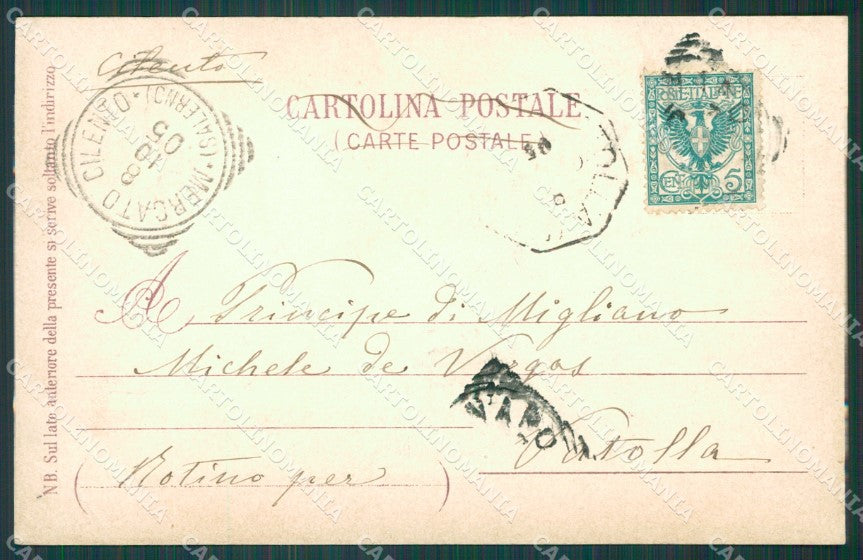 Cilento
CARTOLINA POSTALE
(CARTE POSTALE)
MERCATO CILENTO
(SALERNO)
10 8
05
05
CENT 5
A Principe di Migliano
Michele de Vargas
Vatolla
(Rotino per
NB. Sul lato anteriore della presente si scrive soltanto l'indirizzo
CARTOLINOMANIA